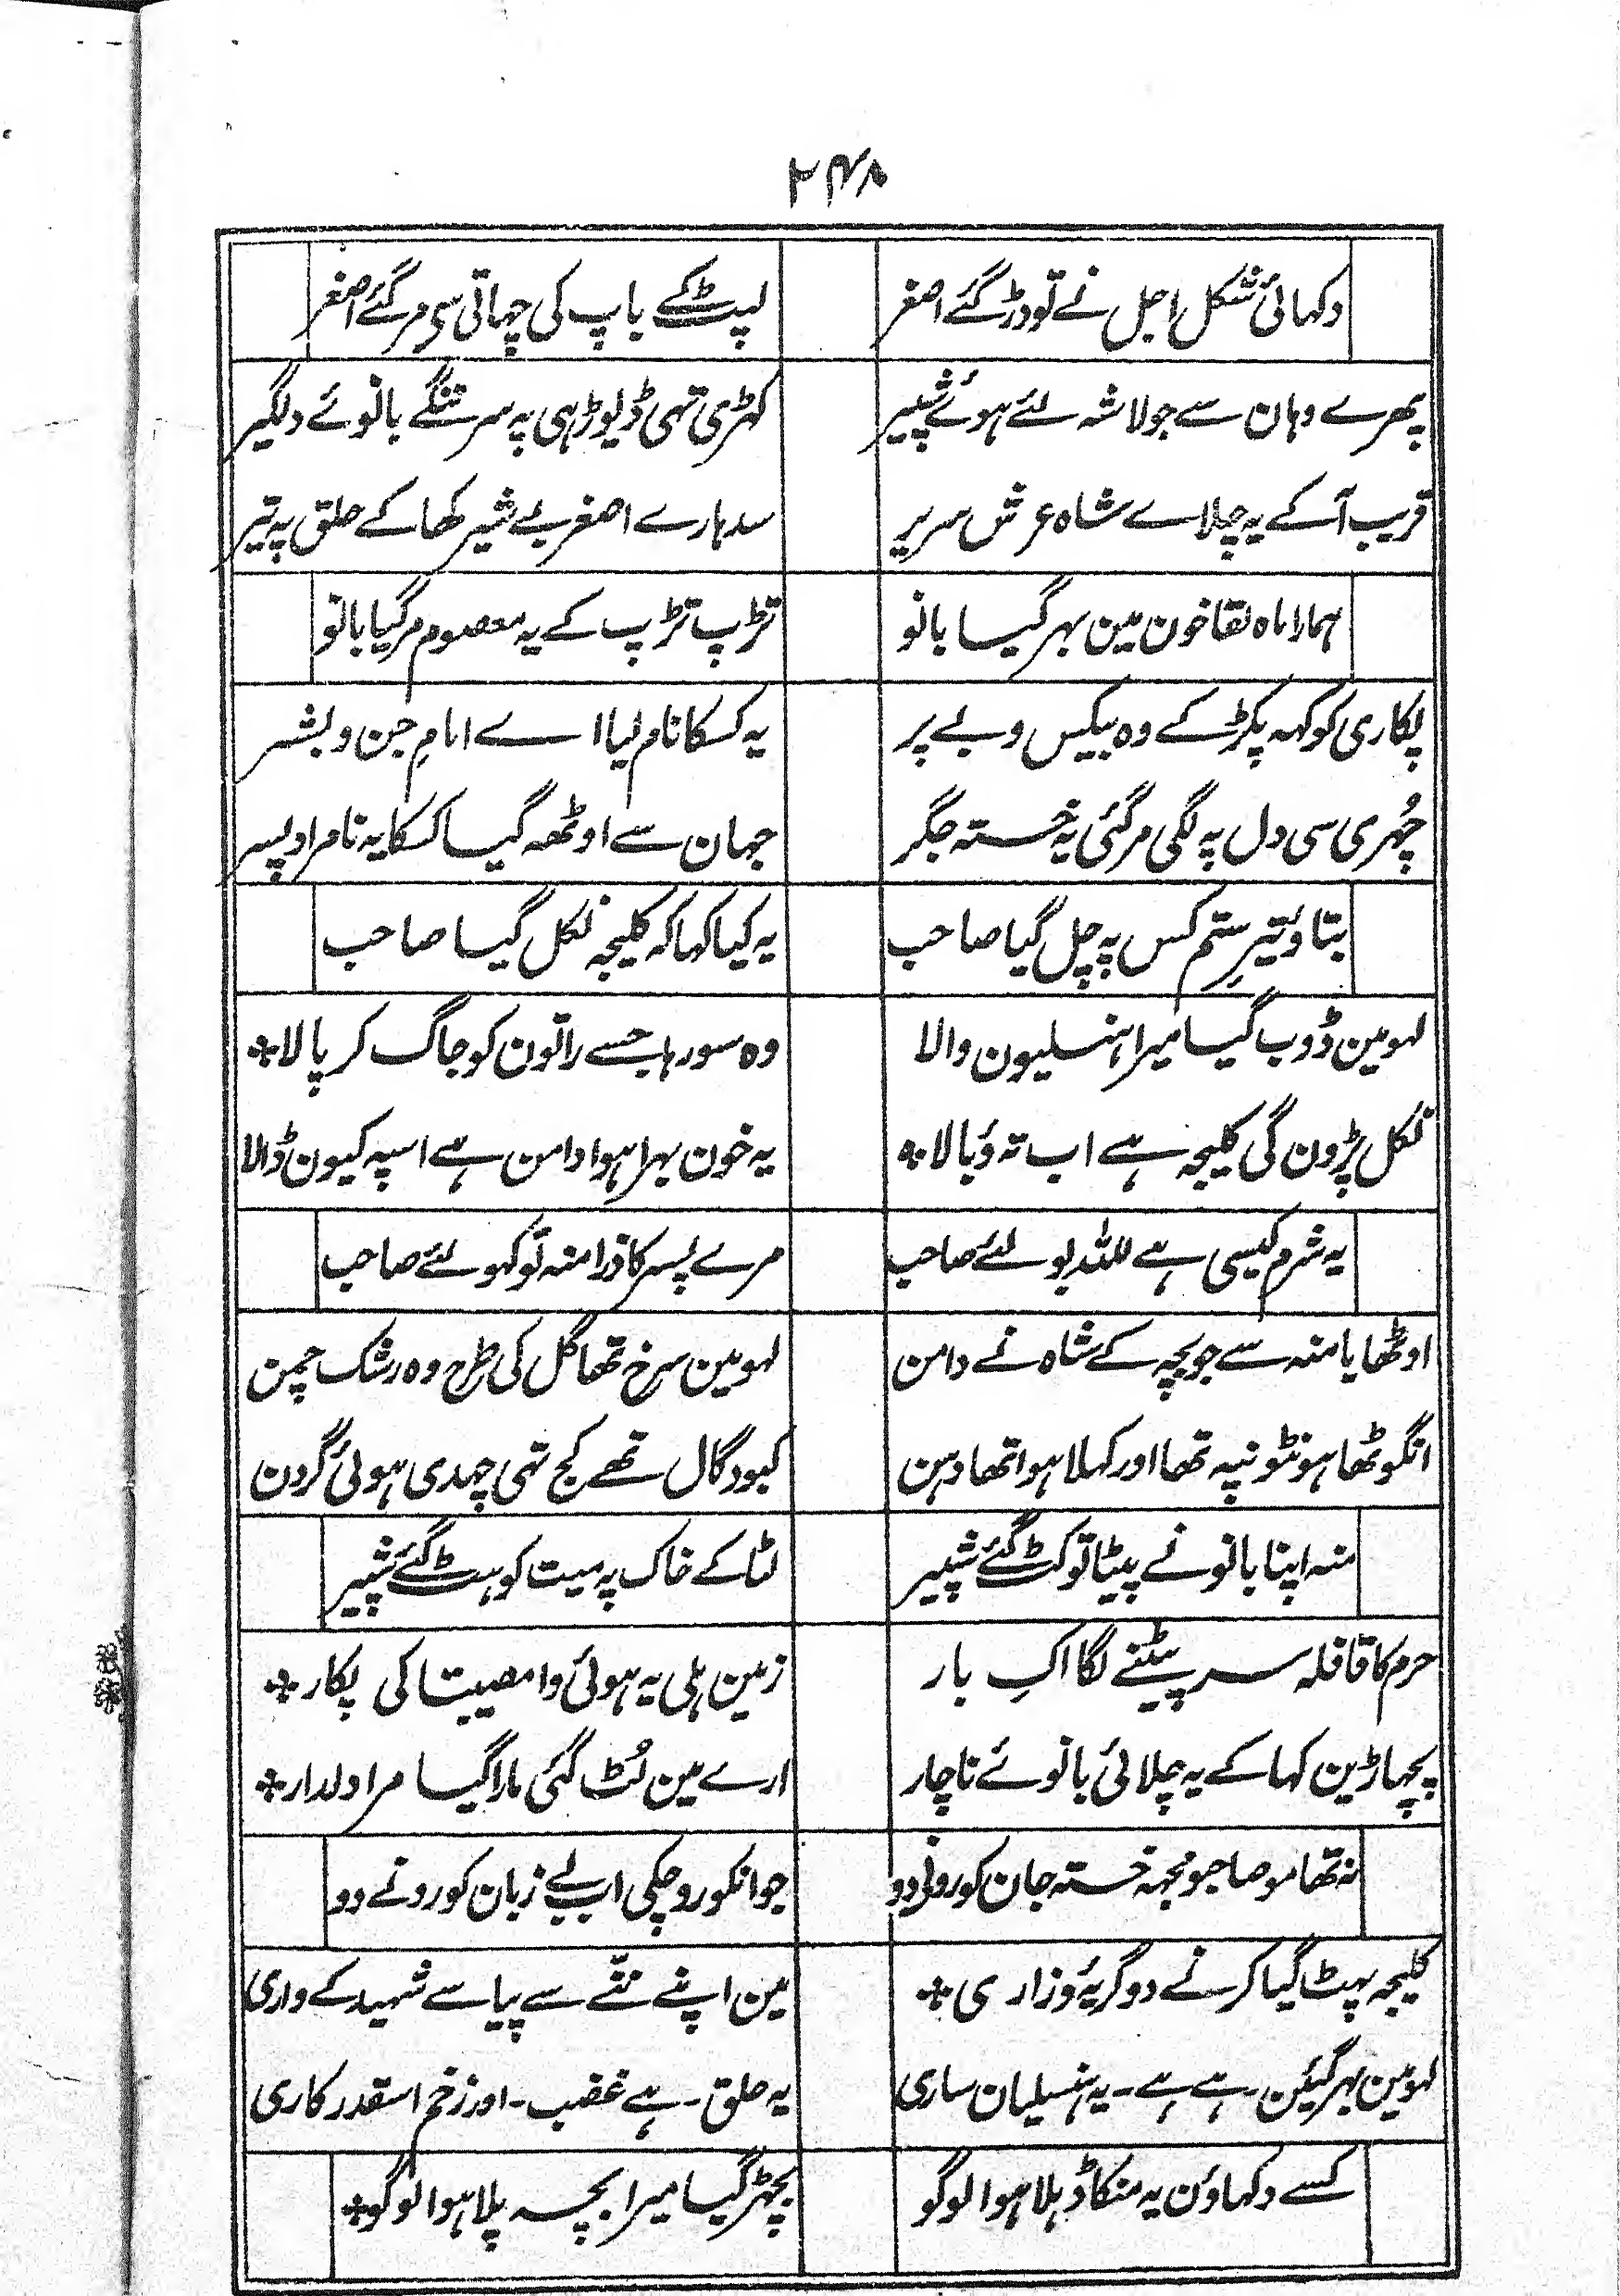 ۲۴۸
دکہائی شکل اجل نے تو ڈر گئے اصغر لپٹ کے باپ کی چہاتی سی مر گئے اصغر
پھرے وہان سے جو لاشہ لئے ہوئے شبیر کہڑی تہی ڈیوڑہی پہ سر ننگے بانوئے دلگیر
قریب آکے یہ چلاے شاہ عرش سریر سدہارے اصغر بے شیر کھا کے حلق پہ تیر
ہمارا ماہ لقا خون مین بہر گیا بانو تڑپ تڑپ کے یہ معصوم مر گیا بانو
پکاری کوکہہ پکڑ کے وہ بیکس و بے پر یہ کسکا نام لیا اے امامِ جن و بشر
چُہری سی دل پہ لگی مر گئی یہ خستہ جگر جہان سے اوٹھہ گیا کسکا یہ نامراد پسر
بتاؤ تیرِ ستم کس پہ چل گیا صاحب یہ کیا کہا کہ کلیجہ نکل گیا صاحب
لہو مین ڈوب گیا میرا ہنسلیون والا وہ سو رہا جسے راتون کو جاگ کر پالا
نکل پڑون گی کلیجہ ہے اب تہ و بالا یہ خون بہرا ہوا دامن ہے اسپہ کیون ڈالا
یہ شرم کیسی ہے للہ بولئے صاحب مرے پسر کا ذرا منہ تو کہولئے صاحب
اوٹھایا منہ سے جو بچہ کے شاہ نے دامن لہو مین سرخ تھا گل کی طرح وہ رشک چمن
انگوٹھا ہونٹونپہ تھا اور کہلا ہوا تھا دہن کبود گال تھے کج تہی چہدی ہوئی گردن
منہ اپنا بانو نے پیٹا تو کٹ گئے شبیر لٹا کے خاک پہ میت کو ہٹ گئے شبیر
حرم کا قافلہ سر پیٹنے لگا اکِ بار زمین ہلی یہ ہوئی وا مصیبتا کی پکار
پچہاڑین کہا کے یہ چلائی بانوئے ناچار ارے مین لُٹ گئی مارا گیا مرا دلدار
نہ تھامو صاحبو مجہہ خستہ جان کو رونی دو جوانکو رو چکی اب بے زبان کو رونے دو
کلیجہ پہٹ گیا کرنے دو گریۂ و زاری مین اپنے ننّے سے پیاسے شہید کے واری
لہو مین بہر گیئن۔ ہے ہے۔ یہ ہنسیلیان ساری یہ حلق۔ ہے غضب۔ اور زخم اسقدر کاری
کسے دکہاؤن یہ منکا ڈہلا ہوا لوگو بچہڑ گیا میرا بچہ پلا ہوا لوگو